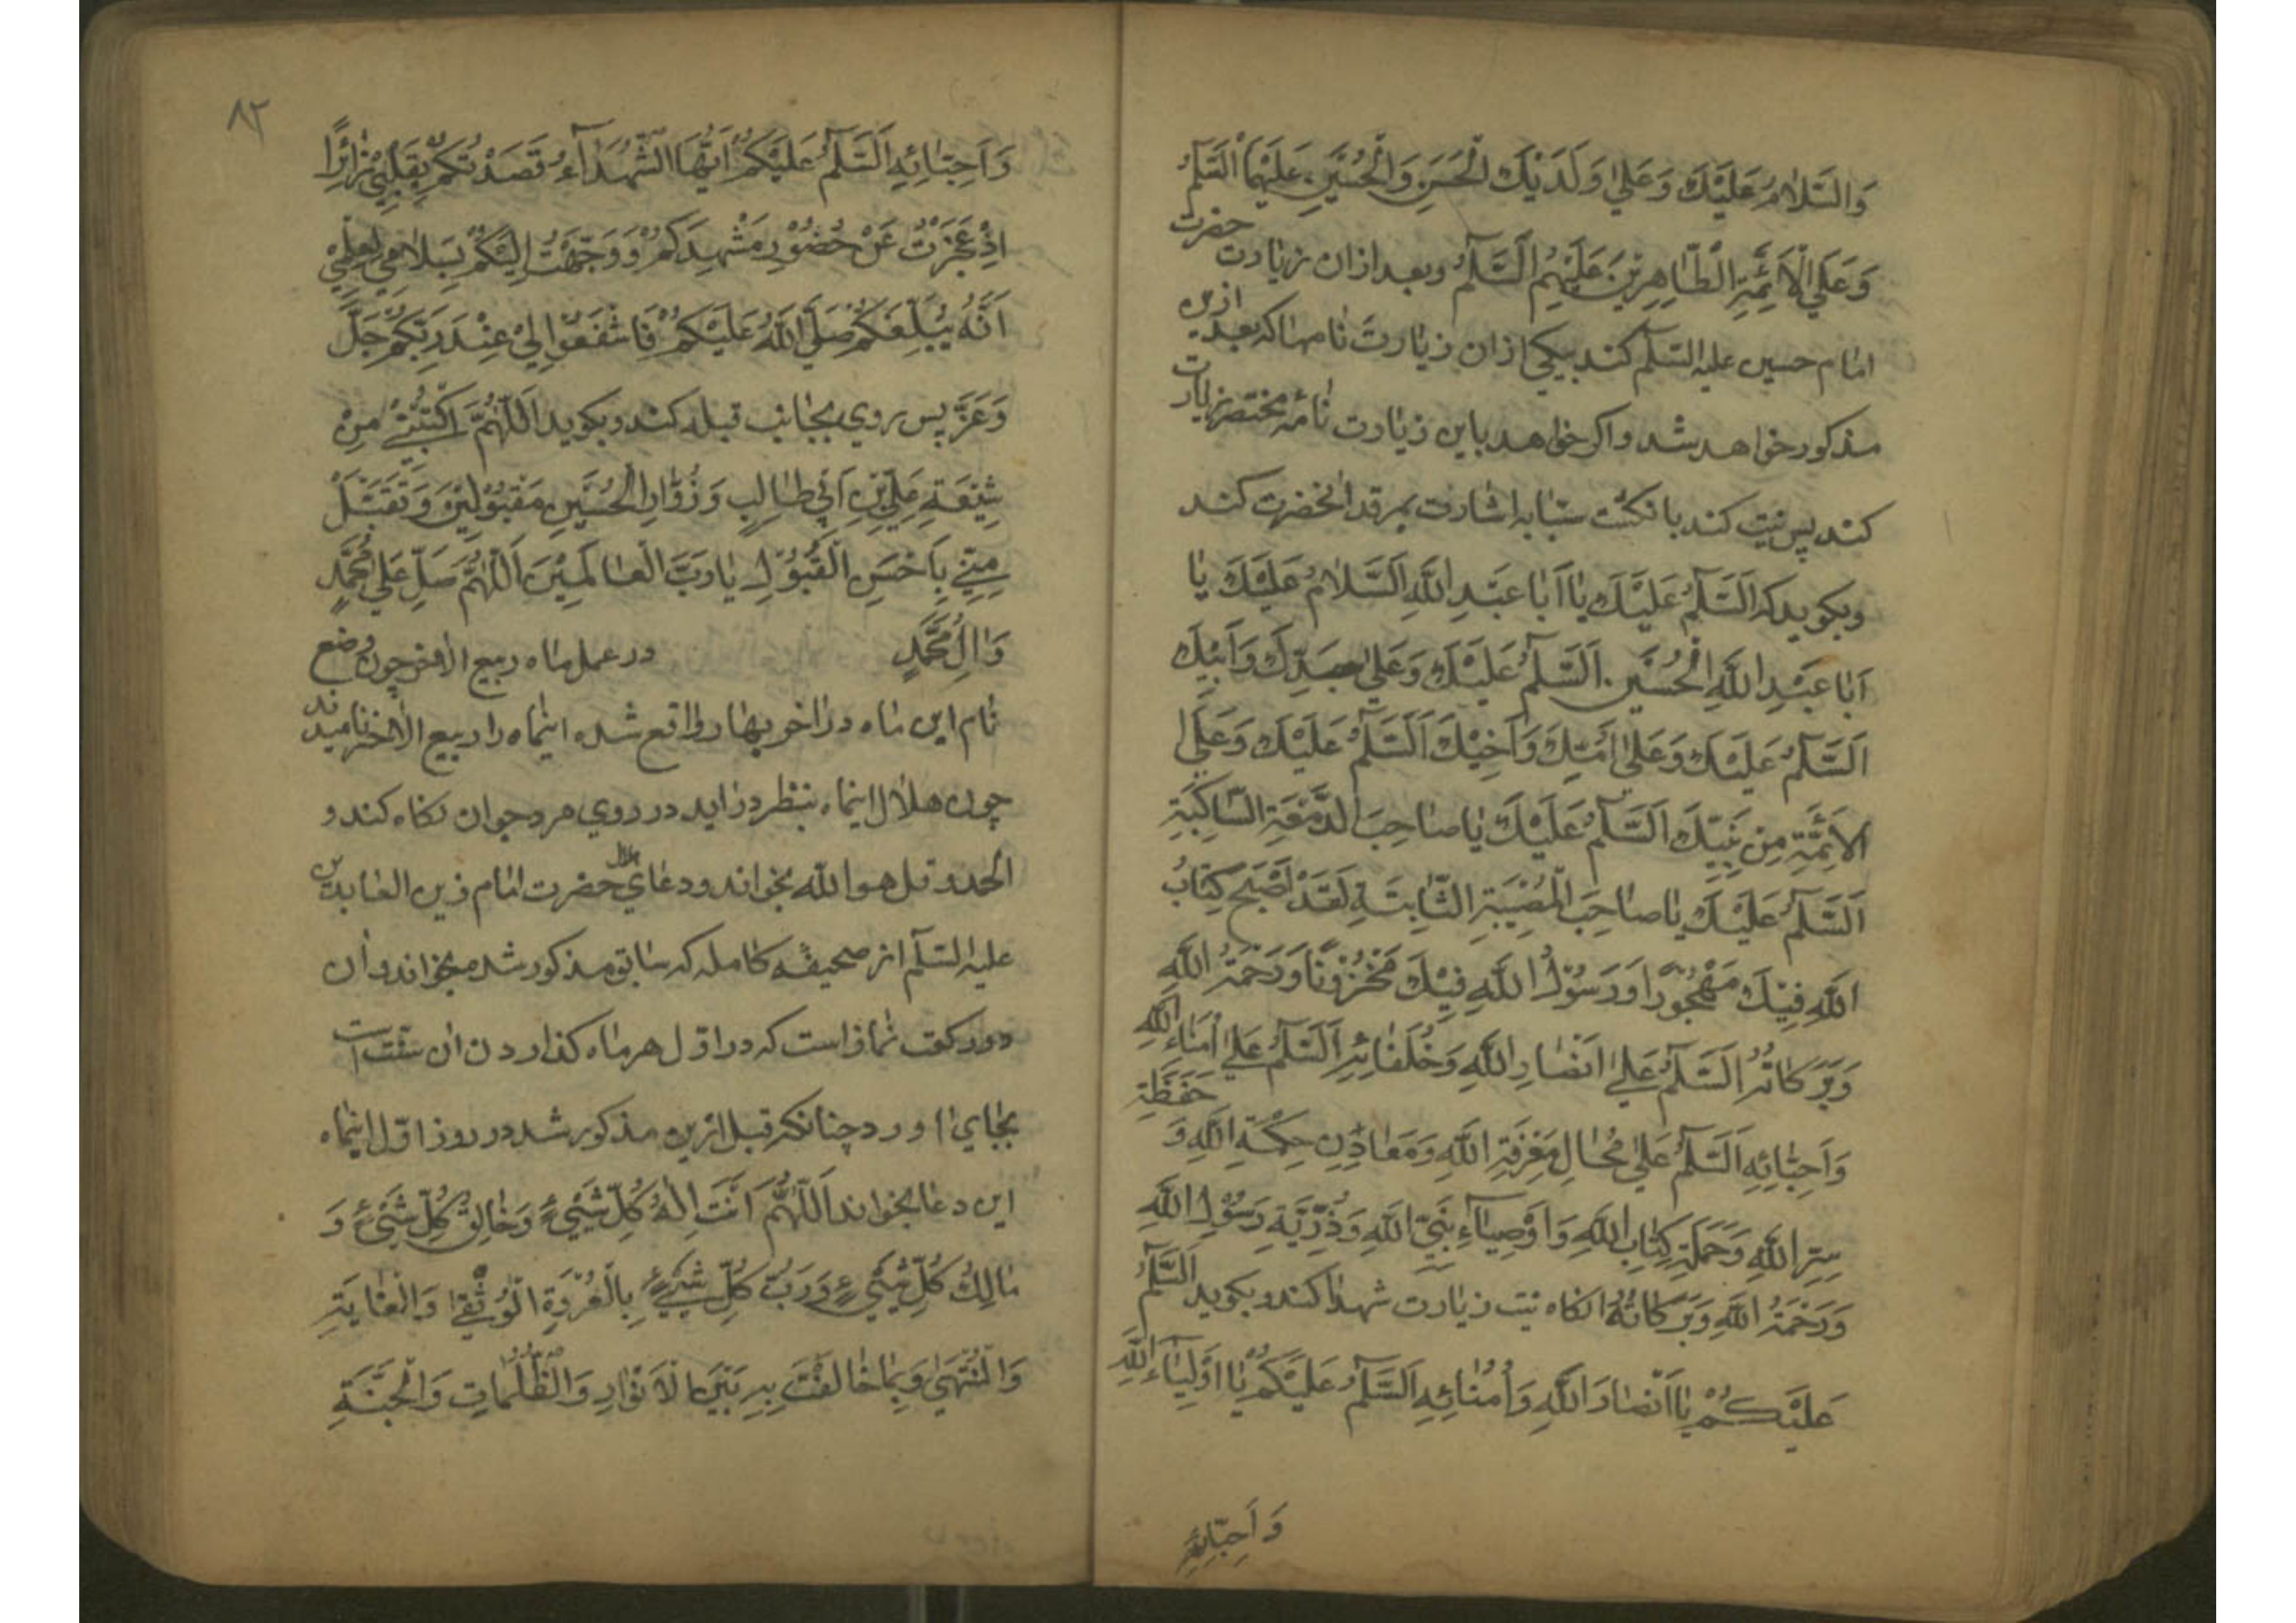 وَالسَّلَامُ عَلَيْكَ وَعَلىٰ وَلَدَيْكَ الْحَسَنِ وَالْحُسَيْنِ عَلَيْهِمَا السَّلٰمُ
وَعَلَى الْاَئِمَّةِ الطَّاهِرِيْنَ عَلَيْهِمُ السَّلٰمُ وبعد ازان زيارت حضرت
امام حسين عليه السّلٰم كند بيكى ازان زيارت نامها كه بعد ازين
مذكور خواهد شد واكر خواهد باين زيارت نامهٔ مختصر زيارت
كند پس نيت كند بانكشت سبّابه اشارت بمرقد انحضرت كند
وبكويد كه اَلسَّلٰمُ عَلَيْكَ يَا اَبَا عَبْدِ اللّٰهِ اَلسَّلَامُ عَلَيْكَ يَا
اَبَا عَبْدِ اللّٰهِ الْحُسَيْنِ اَلسَّلٰمُ عَلَيْكَ وَعَلىٰ جَدِّكَ وَاَبِيْكَ
اَلسَّلٰمُ عَلَيْكَ وَعَلىٰ اُمِّكَ وَاَخِيْكَ اَلسَّلٰمُ عَلَيْكَ وَعَلَى
الْاَئِمَّةِ مِنْ بَنِيْكَ اَلسَّلٰمُ عَلَيْكَ يَا صَاحِبَ الدَّمْعَةِ السَّاكِبَةِ
اَلسَّلٰمُ عَلَيْكَ يَا صَاحِبَ الْمُصِيْبَةِ الثَّابِتَةِ لَقَدْ اَصْبَحَ كِتَابُ
اللّٰهِ فِيْكَ مَهْجُوْرًا وَرَسُوْلُ اللّٰهِ فِيْكَ مَحْزُوْنًا وَرَحْمَةُ اللّٰهِ
وَبَرَكَاتُهُ اَلسَّلٰمُ عَلىٰ اَنْصَارِ اللّٰهِ وَخُلَفَائِهِ اَلسَّلٰمُ عَلىٰ اُمَنَاءِ اللّٰهِ
وَاَحِبَّائِهِ اَلسَّلٰمُ عَلىٰ مَحَالِ مَعْرِفَةِ اللّٰهِ وَمَعَادِنِ حِكْمَةِ اللّٰهِ وَ حَفَظَةِ
سِرِّ اللّٰهِ وَحَمَلَةِ كِتَابِ اللّٰهِ وَاَوْصِيَاءِ نَبِيِّ اللّٰهِ وَذُرِّيَّةِ رَسُوْلِ اللّٰهِ
وَرَحْمَةُ اللّٰهِ وَبَرَكَاتُهُ انكاه نيت زيارت شهدا كند وبكويد اَلسَّلٰمُ
عَلَيْكُمْ يَا اَنْصَارَ اللّٰهِ وَاُمَنَائِهِ اَلسَّلٰمُ عَلَيْكُمْ يَا اَوْلِيَاءَ اللّٰهِ
وَاَحِبَّائِهِ
٨٢
وَاَحِبَّائِهِ اَلسَّلٰمُ عَلَيْكُمْ اَيُّهَا الشُّهَدَاءُ قَصَدْتُكُمْ بِقَلْبِيْ زَائِرًا
اِذْ عَجَزْتُ عَنْ حُضُوْرِ مَشْهَدِكُمْ وَوَجَّهْتُ اِلَيْكُمْ بِسَلَامِيْ لِعِلْمِيْ
اَنَّهُ يُبَلِّغُكُمْ صَلَّى اللّٰهُ عَلَيْكُمْ فَاشْفَعُوْا لِيْ عِنْدَ رَبِّكُمْ جَلَّ
وَعَزَّ پس روى بجانب قبله كند وبكويد اَللّٰهُمَّ اكْتُبْنِيْ مِنْ
شِيْعَةِ عَلِيِّ بْنِ اَبِيْ طَالِبٍ وَزُوَّارِ الْحُسَيْنِ مَقْبُوْلِيْنَ وَتَقَبَّلْ
مِنِّيْ بِاَحْسَنِ الْقَبُوْلِ يَا رَبَّ الْعَالَمِيْنَ اَللّٰهُمَّ صَلِّ عَلىٰ مُحَمَّدٍ
وَاٰلِ مُحَمَّدٍ در عمل ماه ربيع الاخر چون وضع
نام اين ماه در اخر بهار واقع شده اينماه را ربيع الاخر ناميدند
چون هلال اينماه بنظر درايد در روى مرد جوان نكاه كند و
الحمد و قل هو الله بخواند ودعاى هلال حضرت امام زين العابدين
عليه السّلٰم از صحيفه كامله كه سابق مذكور شد ميخواند وان
دو ركعت نماز است كه در اوّل هر ماه كذاردن ان سنّت است
بجاى اورد چنانكه قبل ازين مذكور شد در روز اوّل اينماه
اين دعا بخواند اَللّٰهُمَّ اَنْتَ اِلٰهُ كُلِّ شَيْءٍ وَخَالِقُ كُلِّ شَيْءٍ وَ
مَالِكُ كُلِّ شَيْءٍ وَرَبُّ كُلِّ شَيْءٍ بِالْعُرْوَةِ الْوُثْقٰى وَالْغَايَةِ
وَالْمُنْتَهٰى وَبِمَا خَالَفْتَ بِهِ بَيْنَ الْاَنْوَارِ وَالظُّلُمَاتِ وَالْجَنَّةِ